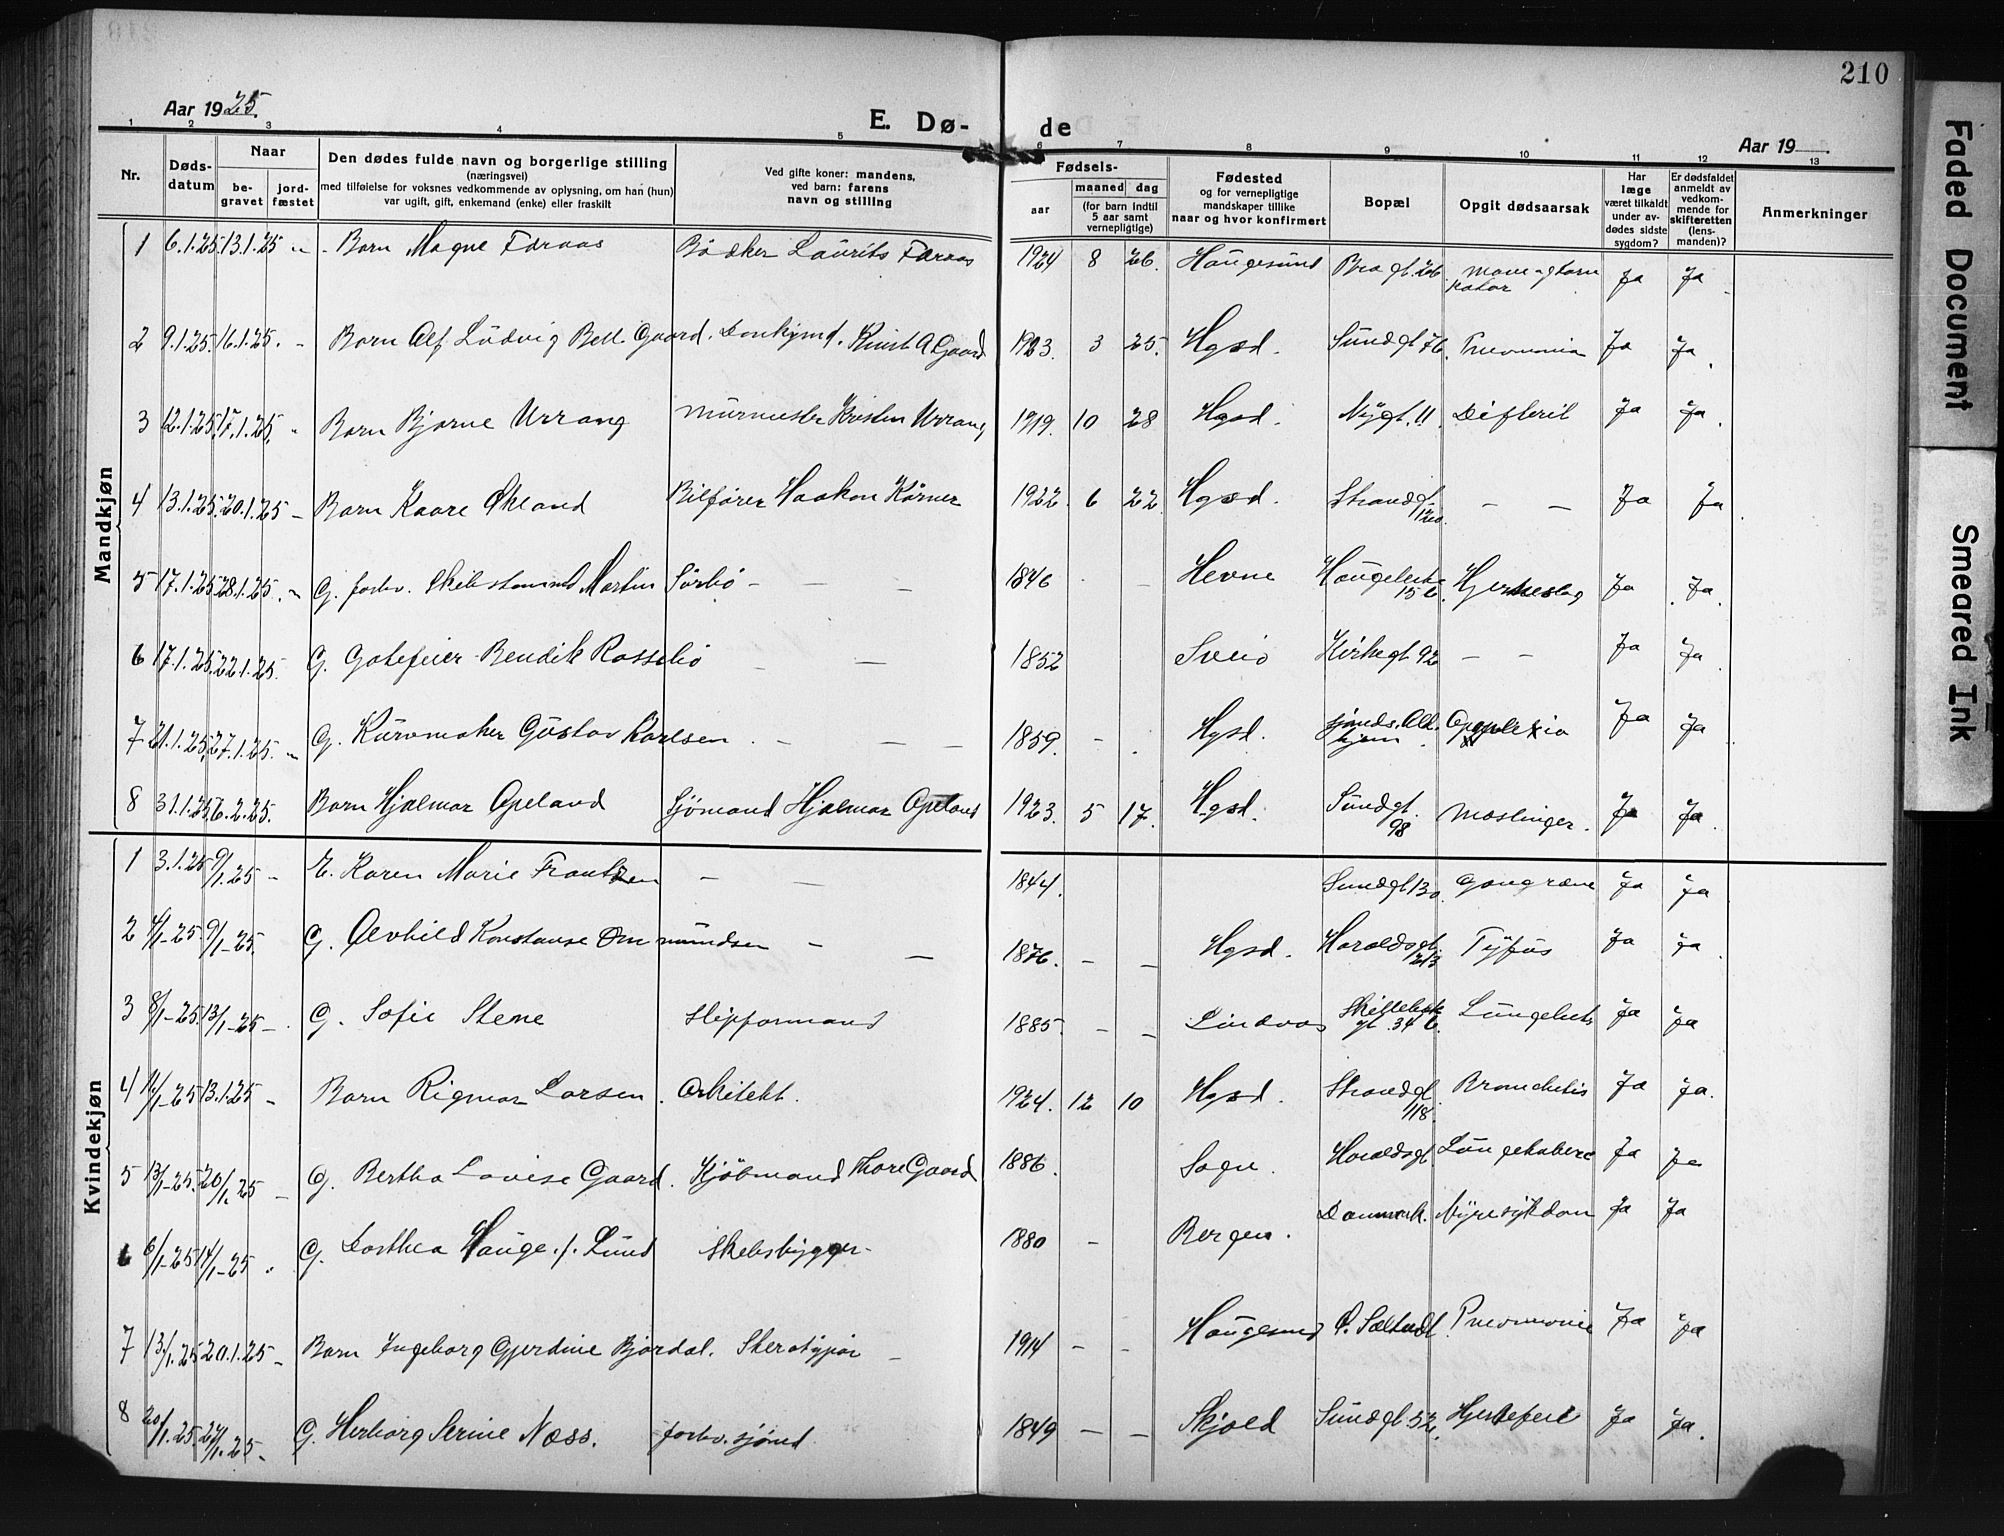 210
Aar 1925.
E. Dø-
de
Aar 19
1 2 3 4 5 6 7 8 9 10 11 12 13
Nr.
Døds-
datum
Naar
be-
gravet
jord-
fæstet
Den dødes fulde navn og borgerlige stilling
(næringsvei)
med tilføielse for voksnes vedkommende av oplysning, om han (hun)
var ugift, gift, enkemand (enke) eller fraskilt
Ved gifte koner: mandens,
ved barn: farens
navn og stilling
Fødsels-
aar
maaned
dag
(for barn indtil
5 aar samt
vernepligtige)
Fødested
og for vernepligtige
mandskaper tillike
naar og hvor konfirmert
Bopæl
Opgit dødsaarsak
Har
læge
været tilkaldt
under av-
dødes sidste
sygdom?
Er dødsfaldet
anmeldt av
vedkom-
mende for
skifteretten
(lens-
manden)?
Anmerkninger
Mandkjøn
1 6.1.25. 13.1.25 " Barn Magne Færaas Bødker Laurits Færaas 1924 8 26. Haugesund Bragt. 26. Mave-og tarm katar Ja Ja
2 9.1.25. 16.1.25. - Barn Alf Ludvig Bell Gaard. Knut A Gaard 1923. 3 25. Hgsd. Sundgt 76. Pneumonia Ja Ja
3 12.1.25. 17.1.25. " Barn Bjarne Urrang Murmester Kristen Urrang 1919. 10 28 Hgsd. Nygt. 11. Difterit Ja Ja
4 13.1.25. 20.1.25 - Barn Kaare Økland Bilfører Haakon Kørner 1922. 6 22. Hgsd. Strandgt 120. - - Ja Ja
5 17.1.25. 28.1.25. " G. forhv. Martin Sørbø - - 1846 - - Hevne 15 b. Hjerneslag Ja Ja.
6 17.1.25. 22.1.25. G. Gatefeier Bendik Rossebø - - 1852 Sveio Kirkegt 92 - - Ja Ja
7 21.1.25. 27.1.25. " G. Kurvmaker Gustav Karlsen. - - - 1859. - - Hgsd. hjem Apoplexia Ja Ja
8 31.1.25. 6.2.25. Barn Hjalmar Apeland Sjømand Hjalmar Apeland 1923. 5 17. Hgsd. Sundgt. 98 Mæslinger. Ja Ja.
Kvindekjøn
1 3.1.25 9/1.25 - E. Karen Marie Frantzen - - 1844. Sundgt 130. Gangræne Ja Ja
2 4/1-25. 9/1-25. G. Alvhild Konstanse Ommundsen - - 1876. - - Hgsd. Haraldsgt. 213 Tyfus Ja Ja
3 8/1-25. 13/1-25 - G. Sofie Stene Slipformand 1885. - - Lindaas gt. 34 b. Ja Ja
4 11/1-25 13.1.25 - Barn Rigmor Larsen. Arkitekt. 1924. 12 10 Hgsd. Strandgt. 118. Bronchitis Ja Ja.
5 13/1-25. 20/1.25 - G. Bertha Lovise Gaard. Kjøbmand Thore Gaard 1886. Sogn. Haraldsgt. Ja Ja
6 6/1-25 14/1-25 " G. Dorthea Hauge f. Lund Skibsbygger- 1880 - Bergen. Danmark. Nyresykdom Ja Ja
7 13/1.25 20.1.25 - Barn Ingeborg Gjerdine Bjordal. Sterotypør - 1914 - - Haugesund Pneumonie Ja Ja
8 20/1.25. 24/1.25 - G. Herborg Serine Næss. forhv. sjømd 1849 - - Skjold Sundgt 52. Hjertefeil Ja Ja.
Faded Document
Smeared Ink